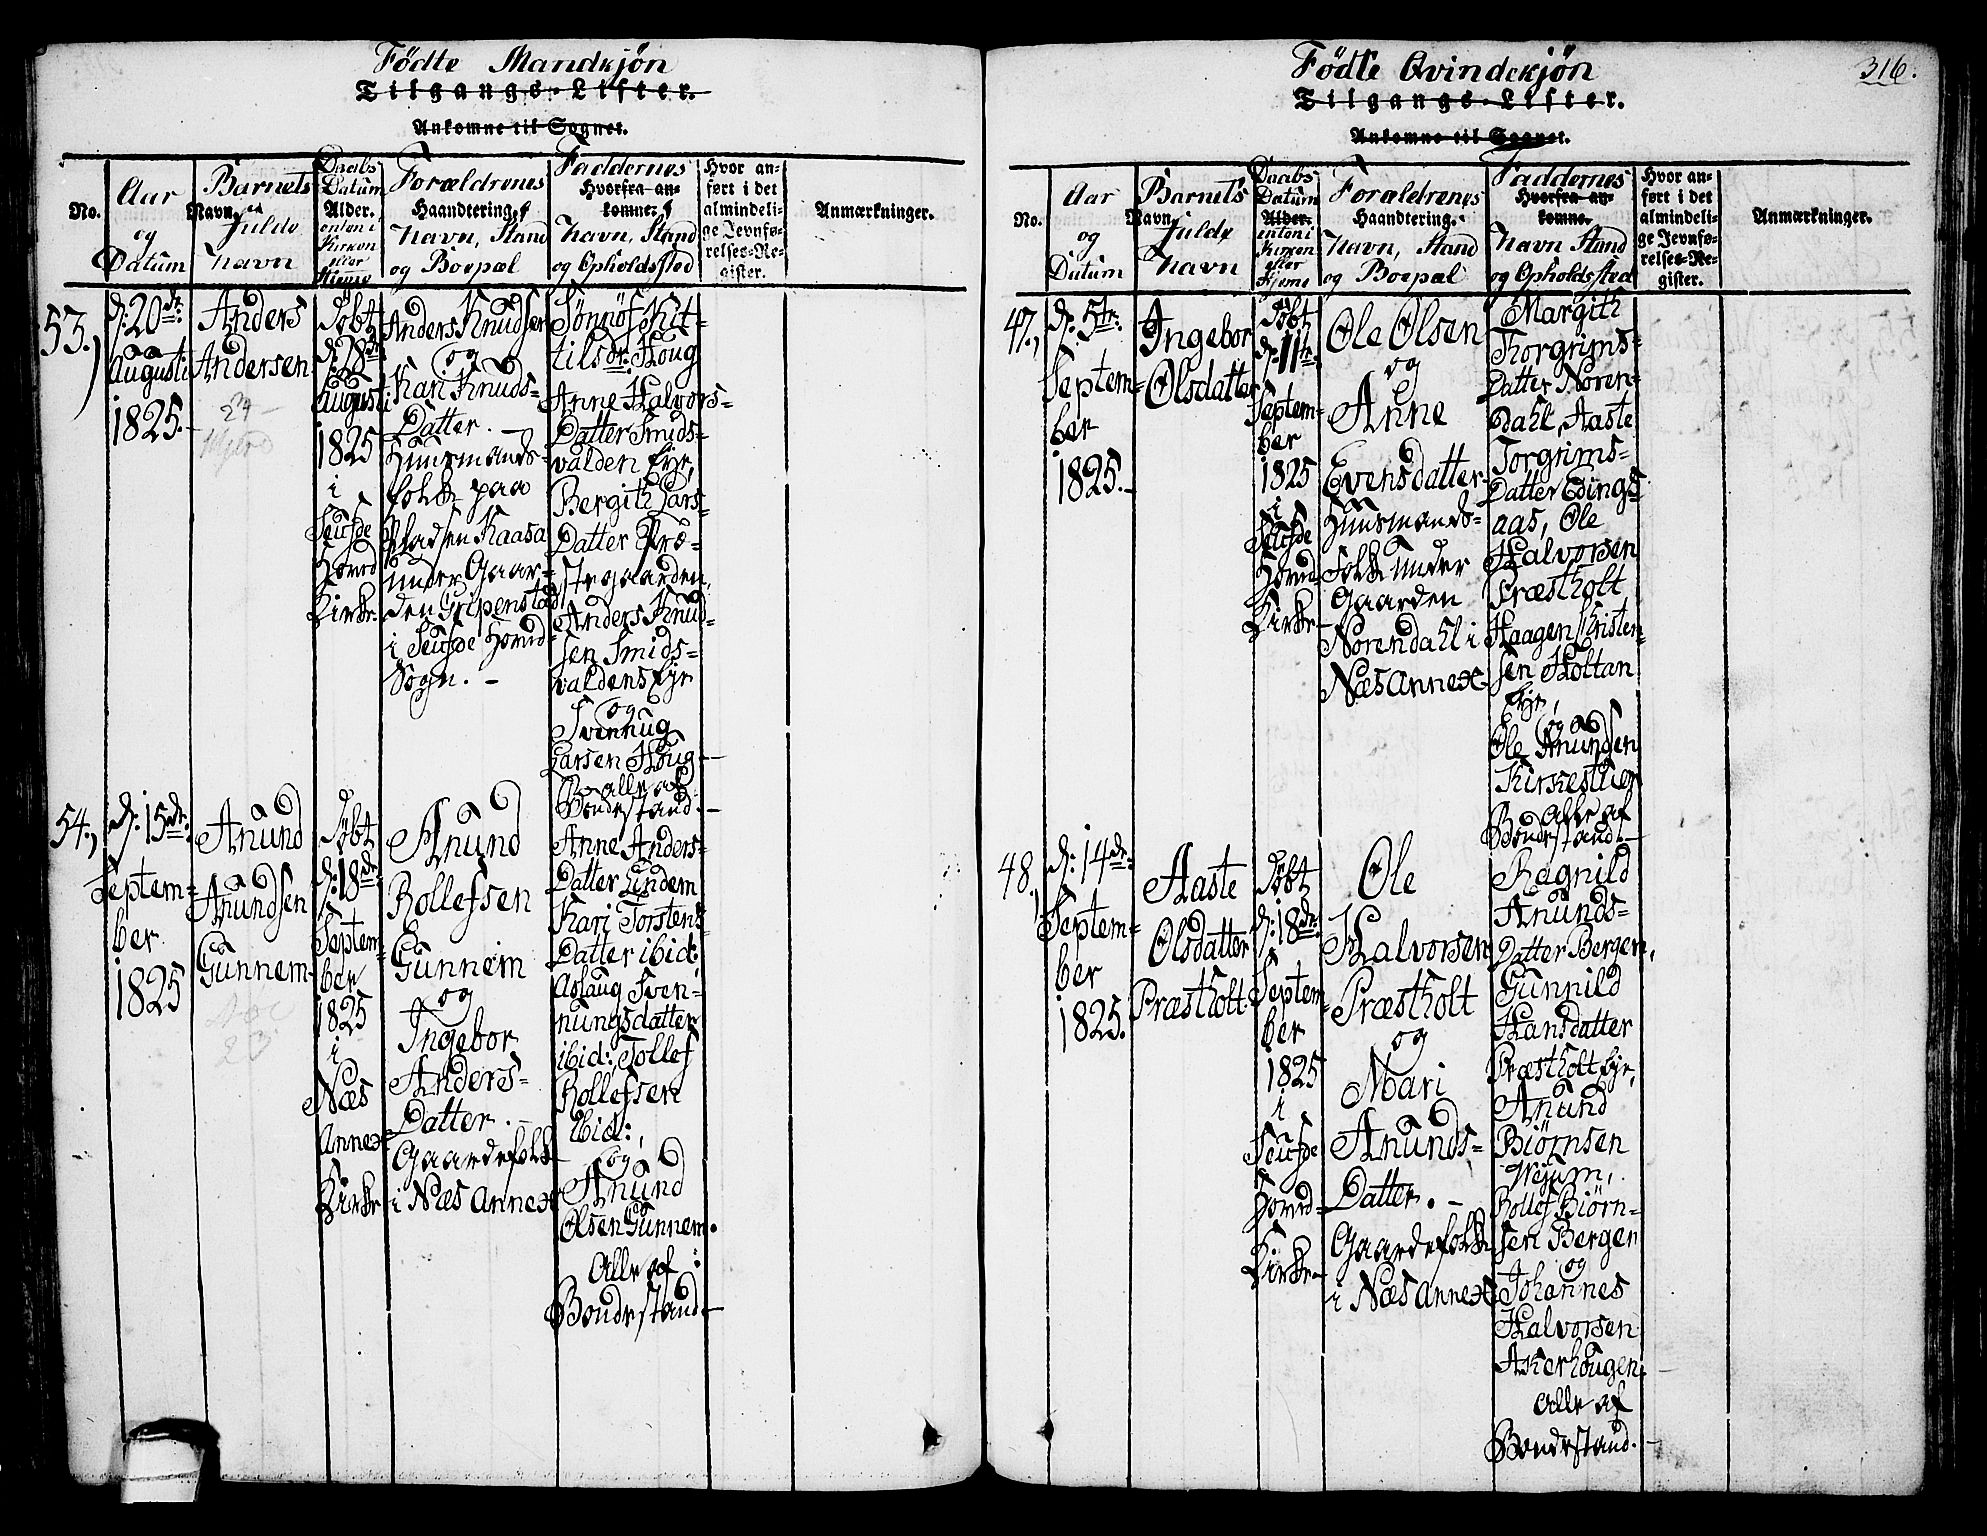 Födte Mandkjön
Tilgangs-Lister.
Ankomne til Sognet.
No.
Aar
og
Datum
Barnets
Navn.
fulde
Navn
Daabs
Datum
Alder.
enten i
Kirken
eller
Hjeme
Forældrenes
Haandtering,
Navn, Stand
og Boepæl
Faddernes
Hvorfra an-
komne.
Navn, Stand
og Opholdssted
Hvor an-
ført i det
almindeli-
ge Jevnfø-
relses-Re-
gister.
Anmærkninger.
53.,
d: 20de:
Augusti
1825.-
Anders
Andersen
Døbt
d: 28de
Augusti
1825
i
Heufde
Hoved
Kirke.
Anders Knudsen
og
Kari Knuds-
Datter. -
Huusmands-
folk paa
Pladsen Kaasa
under Gaar-
den Gripenstad
i Seufde Hoved
Sogn. -
Sønnöf Kit-
tilsdr: Houg
Anne Halvors-
Datter Smids-
valden Eje,
Bergith Lars-
Datter Træ-
stegaarden,
Anders Knud-
sen Smids-
valdens Eje
og
Svennug
Larsen Houg-
alle af
Bondestand. -
54.,
d: 15de:
Septem-
ber
1825
Anund
Anundsen
Gunnem-
Døbt
d: 18de
Septem-
ber
1825
i
Næs
Annex-
Kirke
Anund
Rollefsen
Gunnem
og
Ingebor
Anders-
Datter. -
Gaardefolk
i Næs Annex
Anne Anders-
Datter Lindem
Kari Torstens-
Datter ibid:
Aslaug Sven-
nungsdatter
ibid: Tollef
Rollefsen
Ibid:,
og
Anund
Olsen Gunnem.
Alle af
Bondestand-
Födte Qvindekjön
316.
Tilgangs-Lister.
Ankomne til Sognet.
No.
Aar
og
Datum
Barnets
Navn
fulde
Navn
Daabs
Datum
Alder.
enten i
Kirken
eller
Hjeme
Forældrenes
Haandtering.
Navn, Stand
og Boepæl
Faddernes
Hvorfra an-
komne.
Navn Stand
og Opholdssted
Hvor an-
ført i det
almindeli-
ge Jevnfø-
relses-Re-
gister.
Anmærkninger.
47.,
d: 5te:
Septem-
ber
1825.-
Ingebor
Olsdatter
Døbt
d: 11te:
Septem-
ber
1825
i
Seufde
Hoved
Kirke-
Ole Olsen
og
Anne
Evensdatter
Huusmands-
Folk under
Gaarden
Norendahl i
Næs Annex
Margith
Torgrims-
Datter Noren-
Dahl, Aaste
Torgrims-
Datter Edings-
aas, Ole
Halvorsen
Præstholt
Haagen Christen-
sen Holtan
Eje,
og
Ole Anundsen
Kirkestuer
Alle af
Bondestand. -
48.,
d: 14de:
Septem-
ber
1825.
Aaste
Olsdatter
Præstholt.
Døbt
d: 18de:
Septem-
ber
1825
i
Seufde
Hoved-
Kirke-
Ole
Halvorsen
Præstholt
og
Mari
Anunds-
Datter. -
Gaardefolk
i Næs Annex
Ragnild
Anunds-
Datter Bergem,
Gunnild
Hansdatter
Præstholt Eje,
Anund
Biörnsen
Rollef Biörn-
sen Bergen
og
Johannes
Halvorsen
Akerhougen
Alle af
Bondestand. -